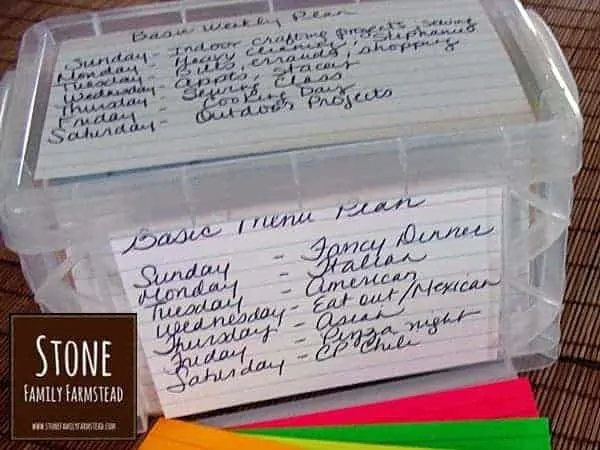 Basic Weekly Plan
Sunday - Indoor crafting projects, sewing
Monday - Heavy Cleaning, Stephanie's
Tuesday - Bills, errands, shopping
Wednesday - Appts, Stacey
Thursday - Sewing Class
Friday - Cooking Day
Saturday - Outdoor Projects
Basic Menu Plan
Sunday - Fancy Dinner
Monday - Italian
Tuesday - American
Wednesday - Eat out/Mexican
Thursday - Asian
Friday - Pizza night
Saturday - CP Chili
STONE
FAMILY FARMSTEAD
WWW.STONEFAMILYFARMSTEAD.COM